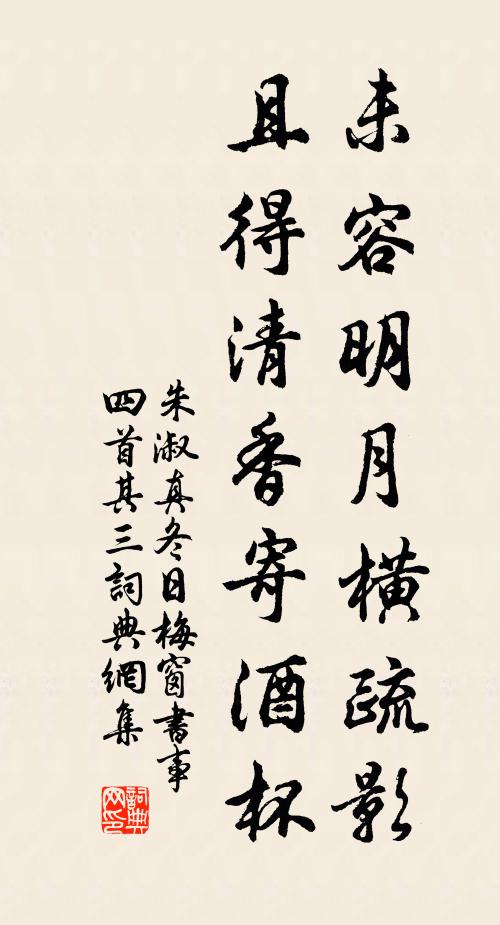 未容明月橫疏影
且得清香寄酒杯
朱淑真冬日梅窗書事
四首其三詞典網集
詞典
网印